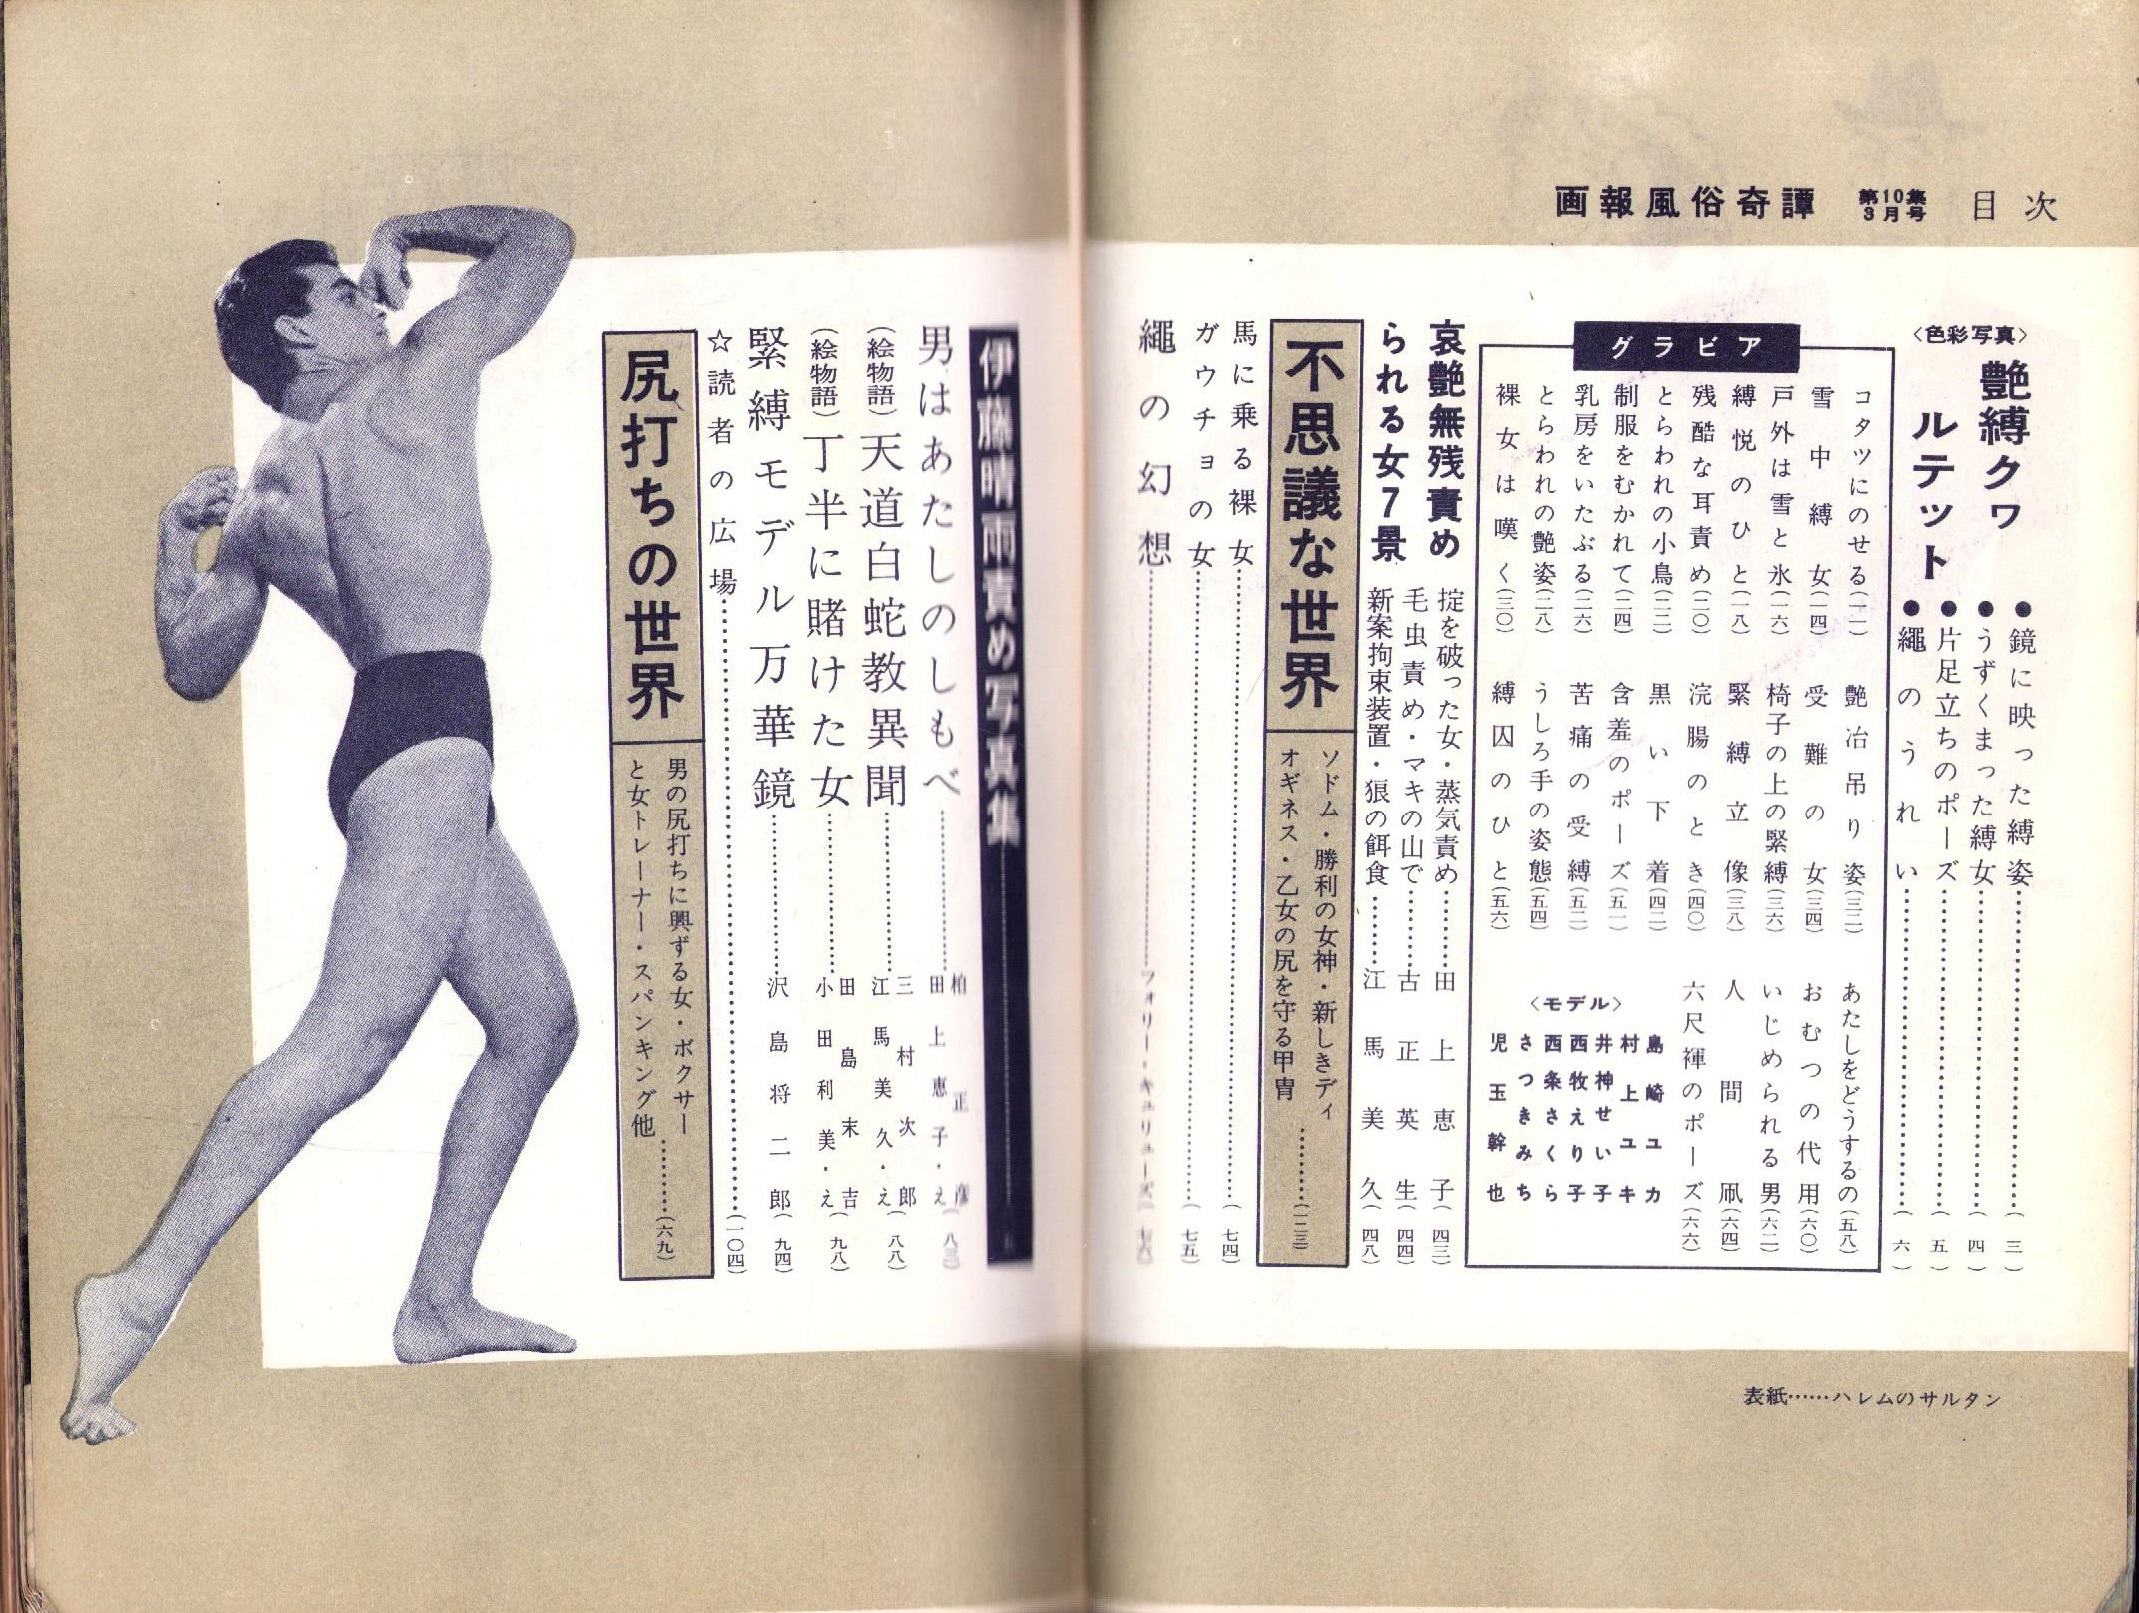 画報風俗奇譚 第10集 3月号 目次
〈色彩写真〉
艶縛クヮ
ルテット
●鏡に映った縛姿……(三)
●うずくまった縛女……(四)
●片足立ちのポーズ……(五)
●繩のうれい……(六)
グラビア
コタツにのせる(一一)
雪中縛女(一四)
戸外は雪と氷(一六)
縛悦のひと(一八)
残酷な耳責め(二〇)
とらわれの小鳥(二二)
制服をむかれて(二四)
乳房をいたぶる(二六)
とらわれの艶姿(二八)
裸女は嘆く(三〇)
艶冶吊り姿(三二)
受難の女(三四)
椅子の上の緊縛(三六)
緊縛立像(三八)
浣腸のとき(四〇)
黒い下着(四二)
含羞のポーズ(五一)
苦痛の受縛(五二)
うしろ手の姿態(五四)
縛囚のひと(五六)
あたしをどうするの(五八)
おむつの代用(六〇)
いじめられる男(六二)
人間凧(六四)
六尺褌のポーズ(六六)
〈モデル〉
島崎ユカ
村上ユキ
井神せい子
西牧えり子
西条さくら
さつきみち
児玉幹也
哀艶無残責め
られる女7景
掟を破った女・蒸気責め……田上恵子(四三)
毛虫責め・マキの山で……古正英生(四四)
新案拘束装置・狼の餌食……江馬美久(四八)
不思議な世界
ソドム・勝利の女神・新しきディ
オギネス・乙女の尻を守る甲冑……(一二三)
馬に乗る裸女……(七四)
ガウチョの女……(七五)
繩の幻想……フォリー・キュリューズ(七六)
伊藤晴雨責め写真集
男はあたしのしもべ……柏正彦 田上恵子・え(八三)
(絵物語)天道白蛇教異聞……三村次郎 江馬美久・え(八八)
(絵物語)丁半に賭けた女……田島末吉 小田利美・え(九八)
緊縛モデル万華鏡……沢島将二郎(九四)
☆読者の広場……(一〇四)
尻打ちの世界
男の尻打ちに興ずる女・ボクサー
と女トレーナー・スパンキング他……(六九)
表紙……ハレムのサルタン